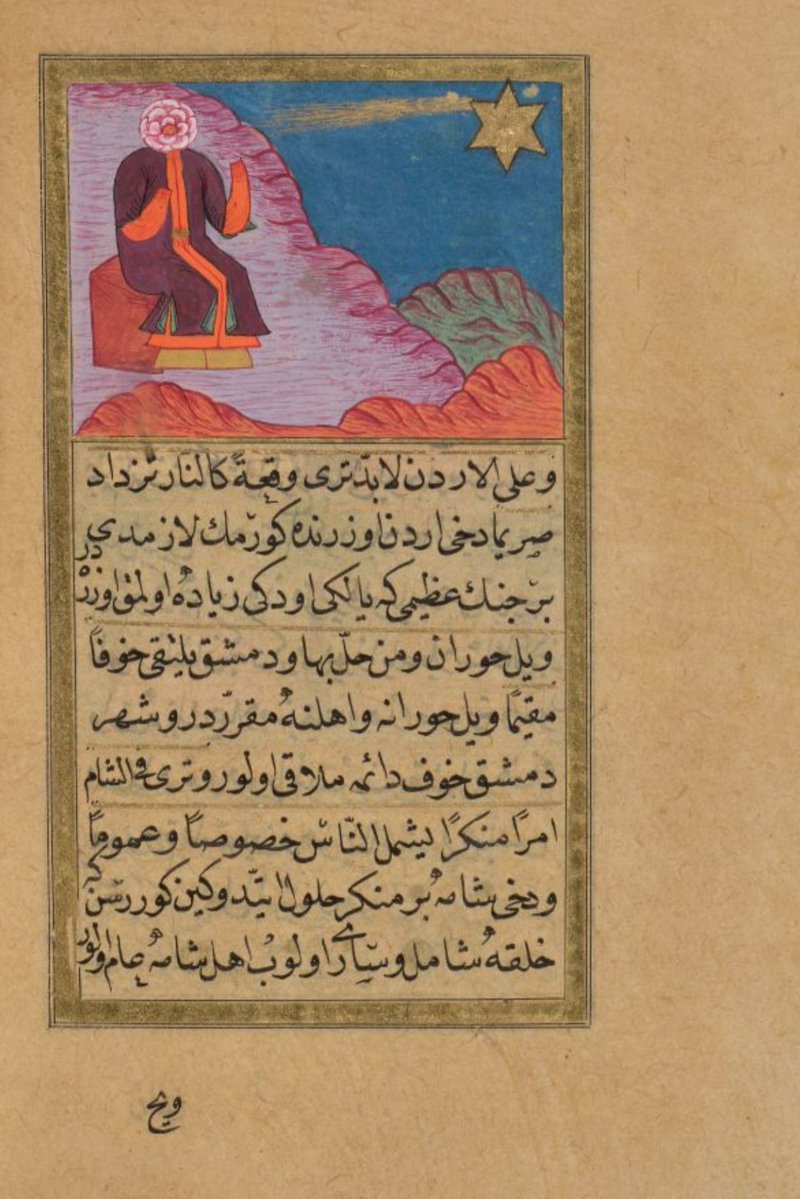 وعلى الاردن لابدّ ترى وقعةً كالنار تزداد
ضريما دخى اردن اوزرنده كورمك لازمدى در
بر جنك عظيمى كه يالكى اودكى زياده اولمق اوزره
ويل حوران ومن حلّ بها ودمشق يلتقى خوفاً
مقيماً ويل حورانه واهلنه مقرّردر وشهر
دمشق خوف دائمه ملاقى اولور وترى فى الشام
امراً منكراً يشمل الناس خصوصاً وعموماً
ودخى شامه بر منكر حلول ايتدوكين كوررسن كه
خلقه شامل وسارى اولوب اهل شامه عام اولور
ويح